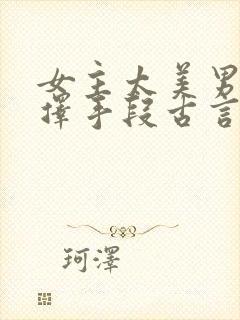 女主太美男
擇手段古言
珂澤